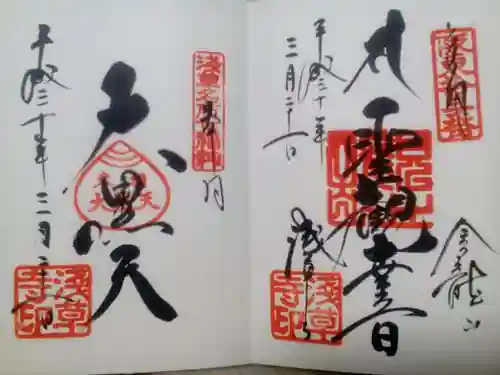 奉拝
聖観世音
金龍山
浅草寺
平成三十年
三月二十一日
浅草寺印
奉拝
大黒天
浅草名所七福神
平成三十年三月二十一日
浅草寺印